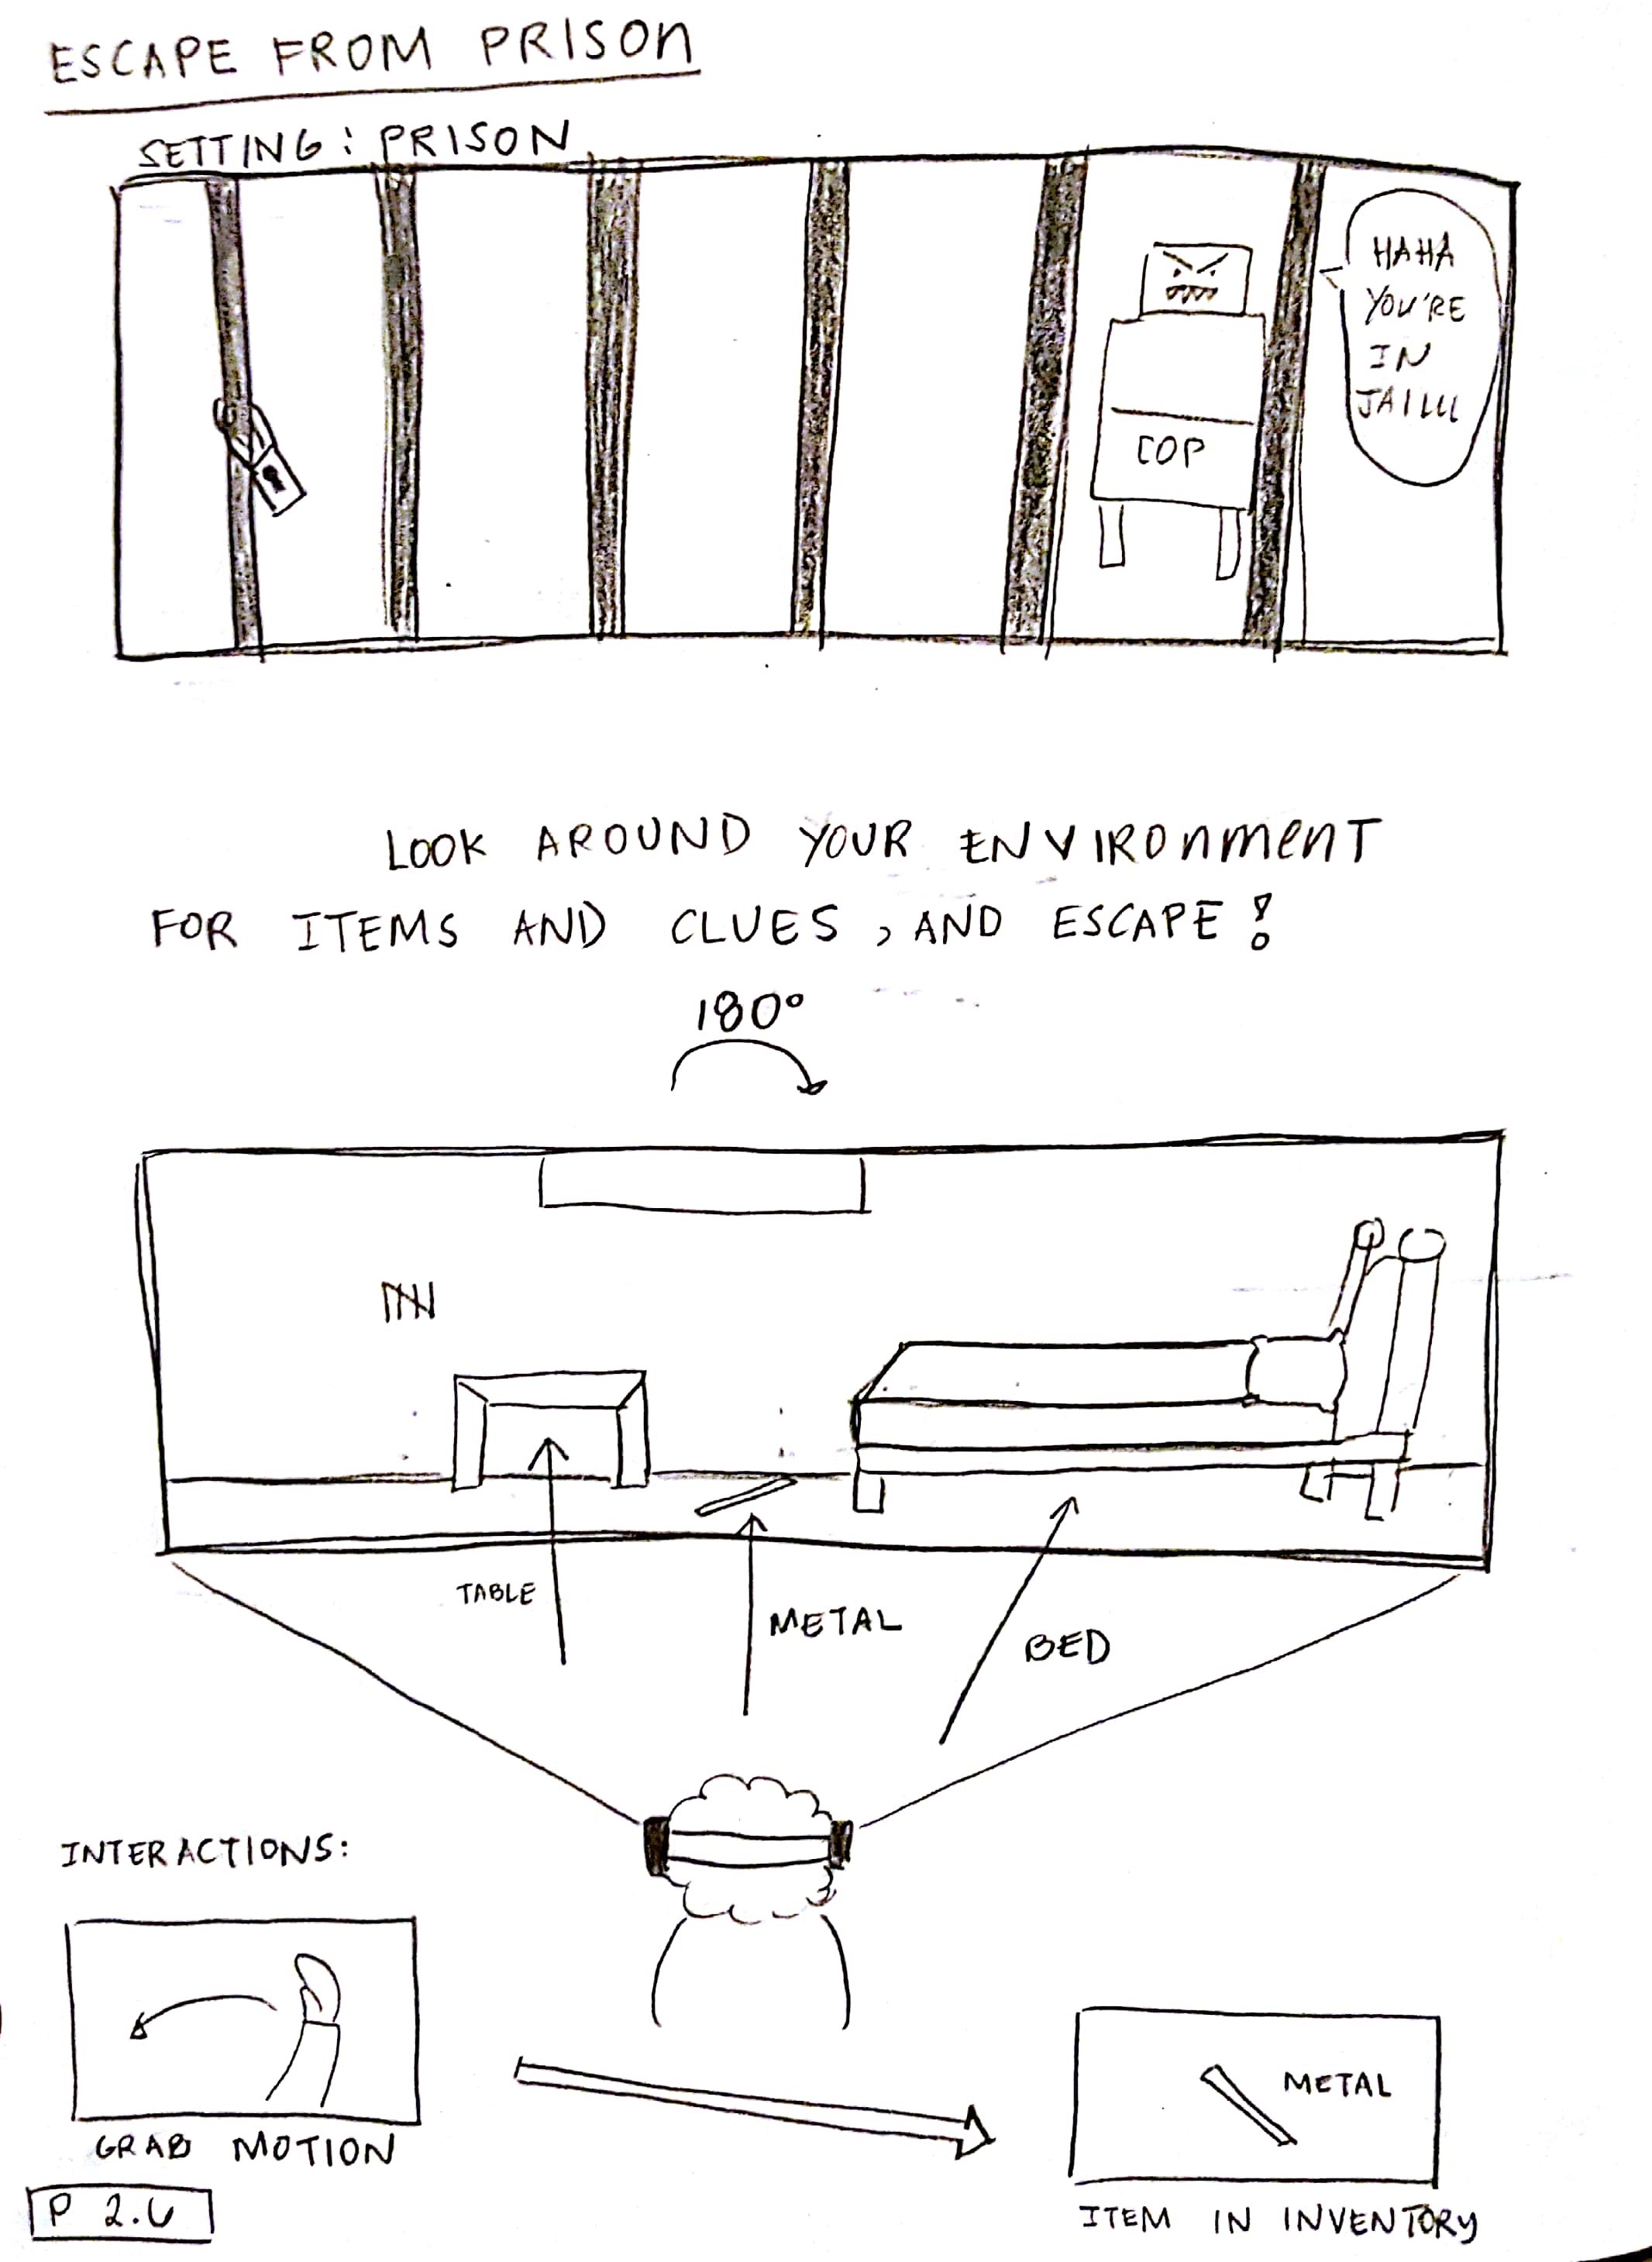 ESCAPE FROM PRISON
SETTING: PRISON
HAHA
YOU'RE
IN
JAILLL
COP
LOOK AROUND YOUR ENVIRONMENT
FOR ITEMS AND CLUES, AND ESCAPE!
180°
TABLE
METAL
BED
INTERACTIONS:
METAL
GRAB MOTION
ITEM IN INVENTORY
P 2.6